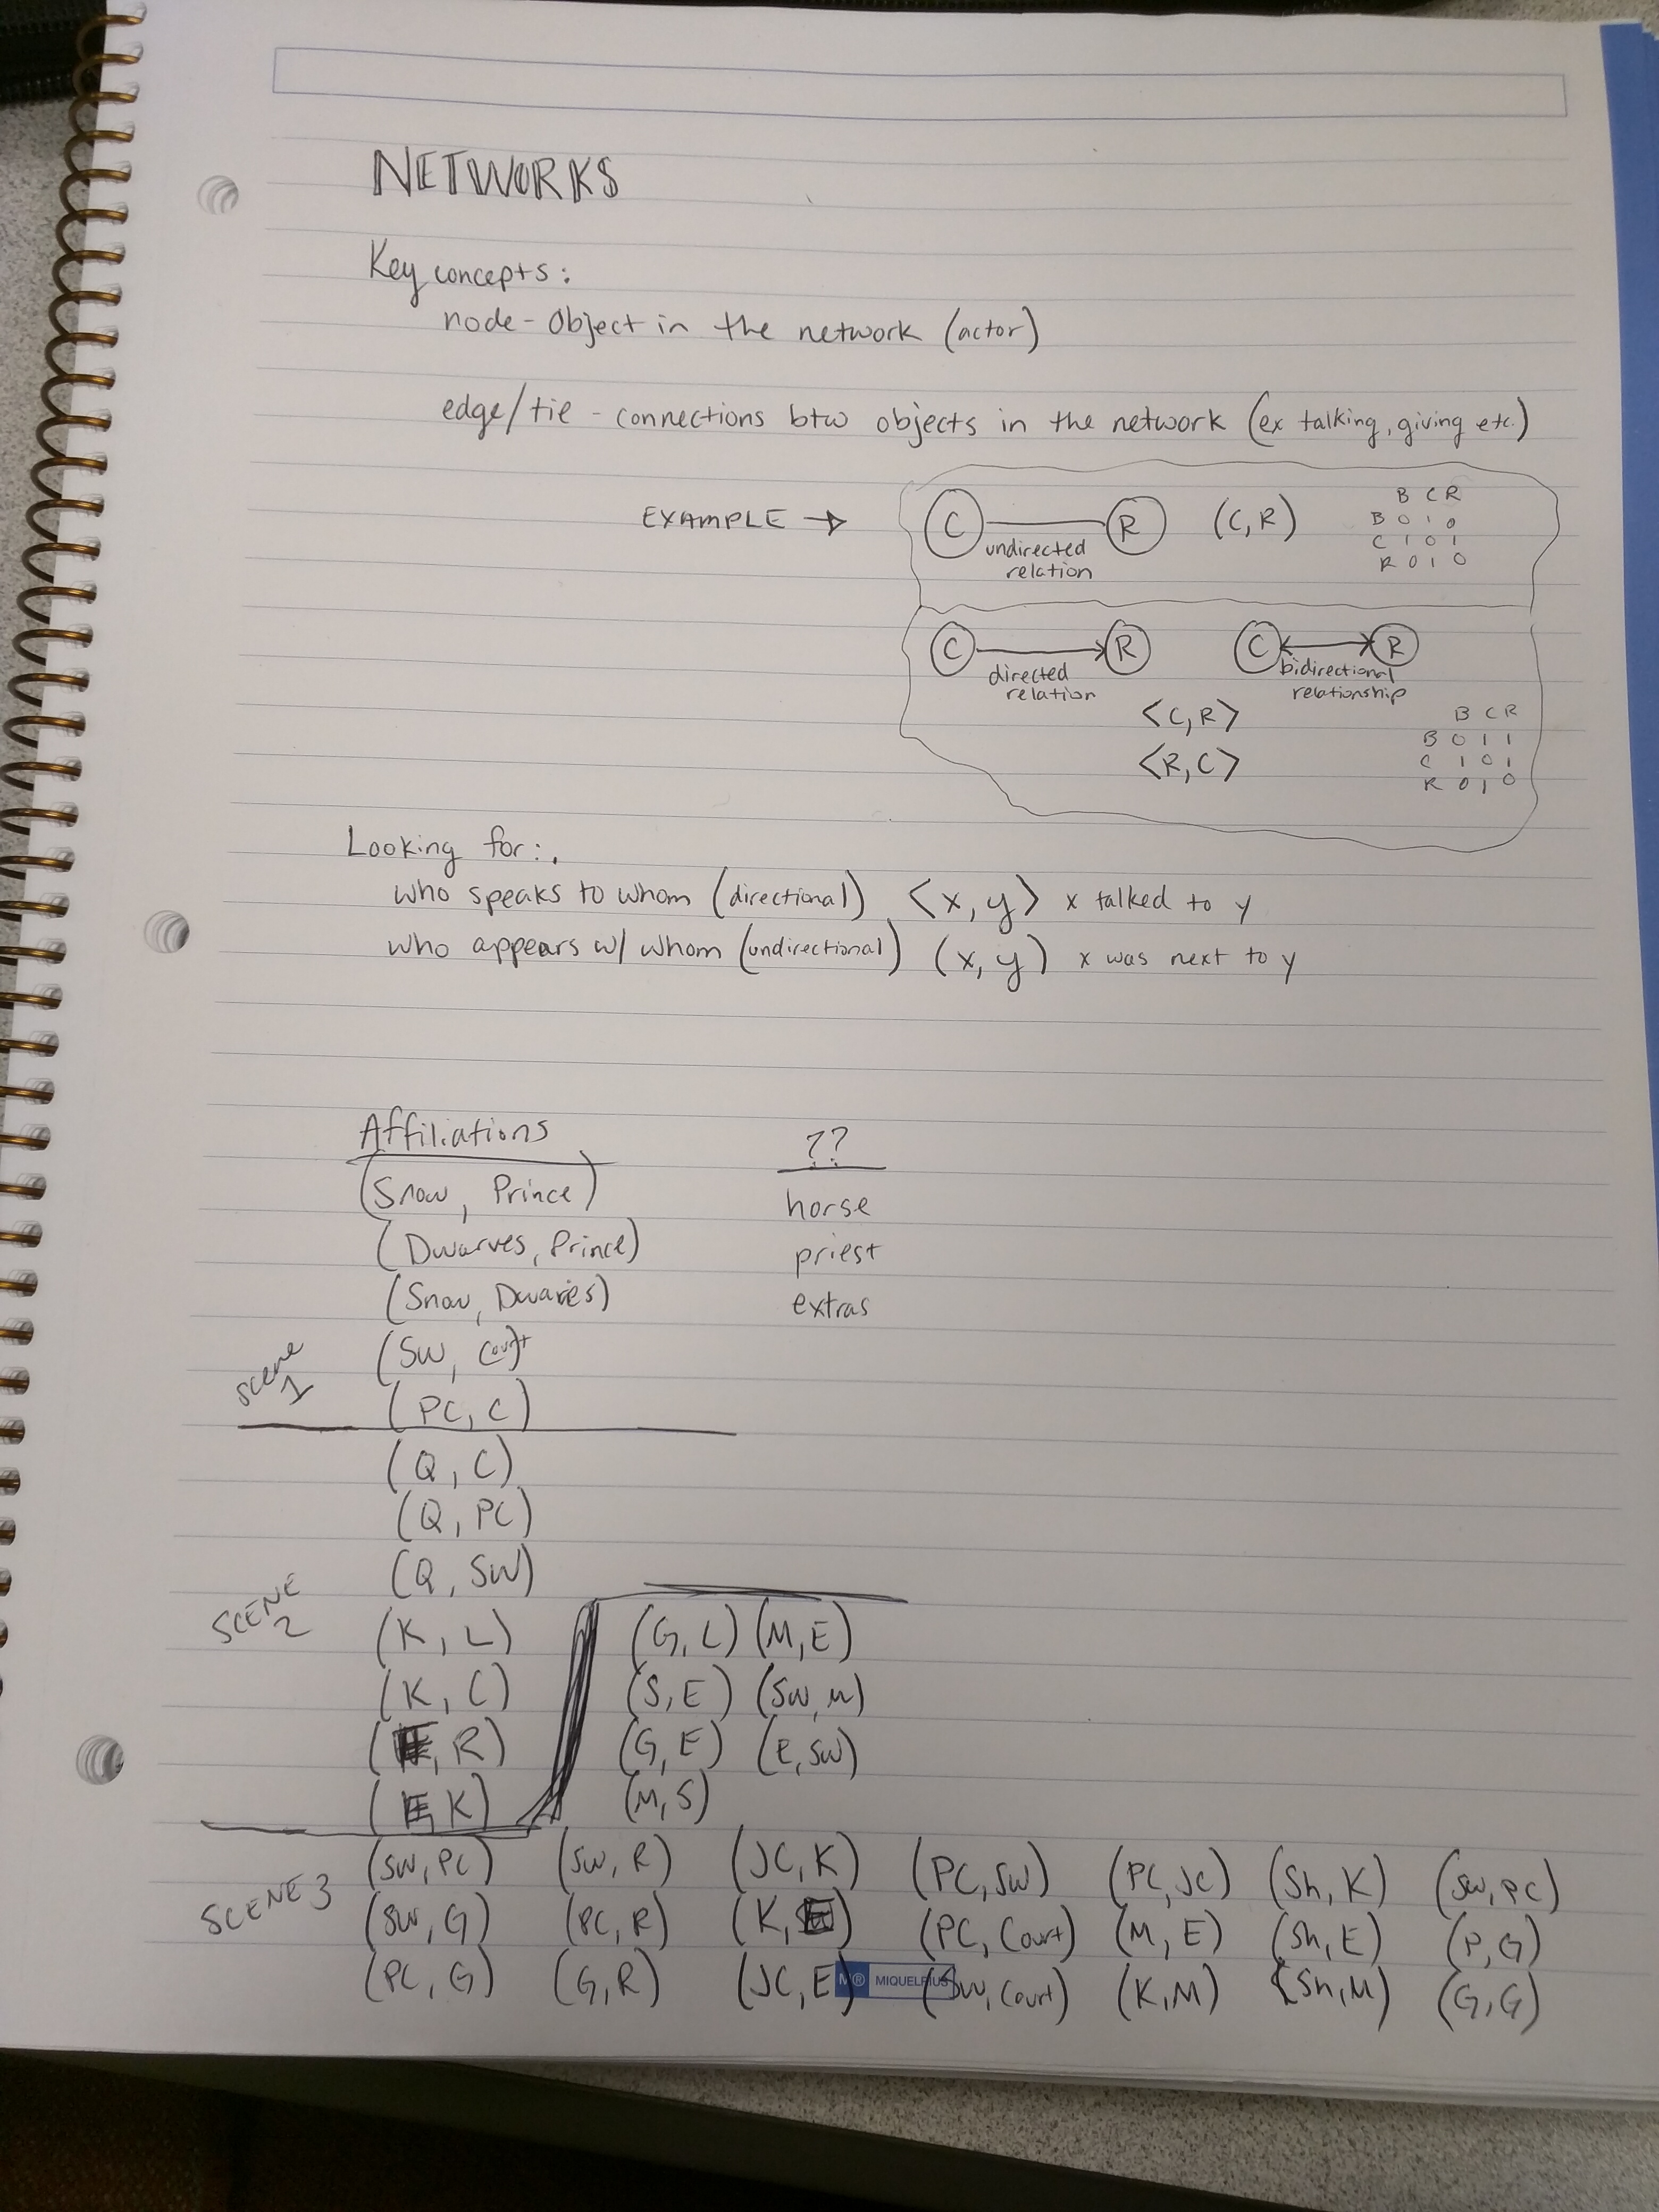 NETWORKS
Key concepts:
node - Object in the network (actor)
edge/tie - connections btw objects in the network (ex talking, giving etc.)
EXAMPLE →
C R (C, R)
undirected
relation
B C R
B 0 1 0
C 1 0 1
R 0 1 0
C R
directed
relation
C R
bidirectional
relationship
<C, R>
<R, C>
B C R
B 0 1 1
C 1 0 1
R 0 1 0
Looking for:
who speaks to whom (directional) <x, y> x talked to y
who appears w/ whom (undirectional) (x, y) x was next to y
Affiliations ??
(Snow, Prince) horse
(Dwarves, Prince) priest
(Snow, Dwarves) extras
(SW, Court)
scene 1
(PC, C)
(Q, C)
(Q, PC)
(Q, SW)
SCENE 2
(K, L) (G, L) (M, E)
(K, C) (S, E) (SW, M)
( , R) (G, E) (E, SW)
( K) (M, S)
SCENE 3
(SW, PC) (SW, R) (JC, K) (PC, SW) (PC, JC) (Sh, K) (SW, PC)
(SW, G) (PC, R) (K, ) (PC, Court) (M, E) (Sh, E) (P, G)
(PC, G) (G, R) (JC, E) (SW, Court) (K, M) (Sh, M) (G, G)
M® MIQUELRIUS